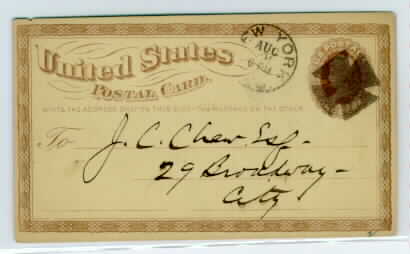 United States
POSTAL CARD.
WRITE THE ADDRESS ONLY ON THIS SIDE—THE MESSAGE ON THE OTHER
NEW YORK
AUG
To J. C. Chew Esq.
29 Broadway
City